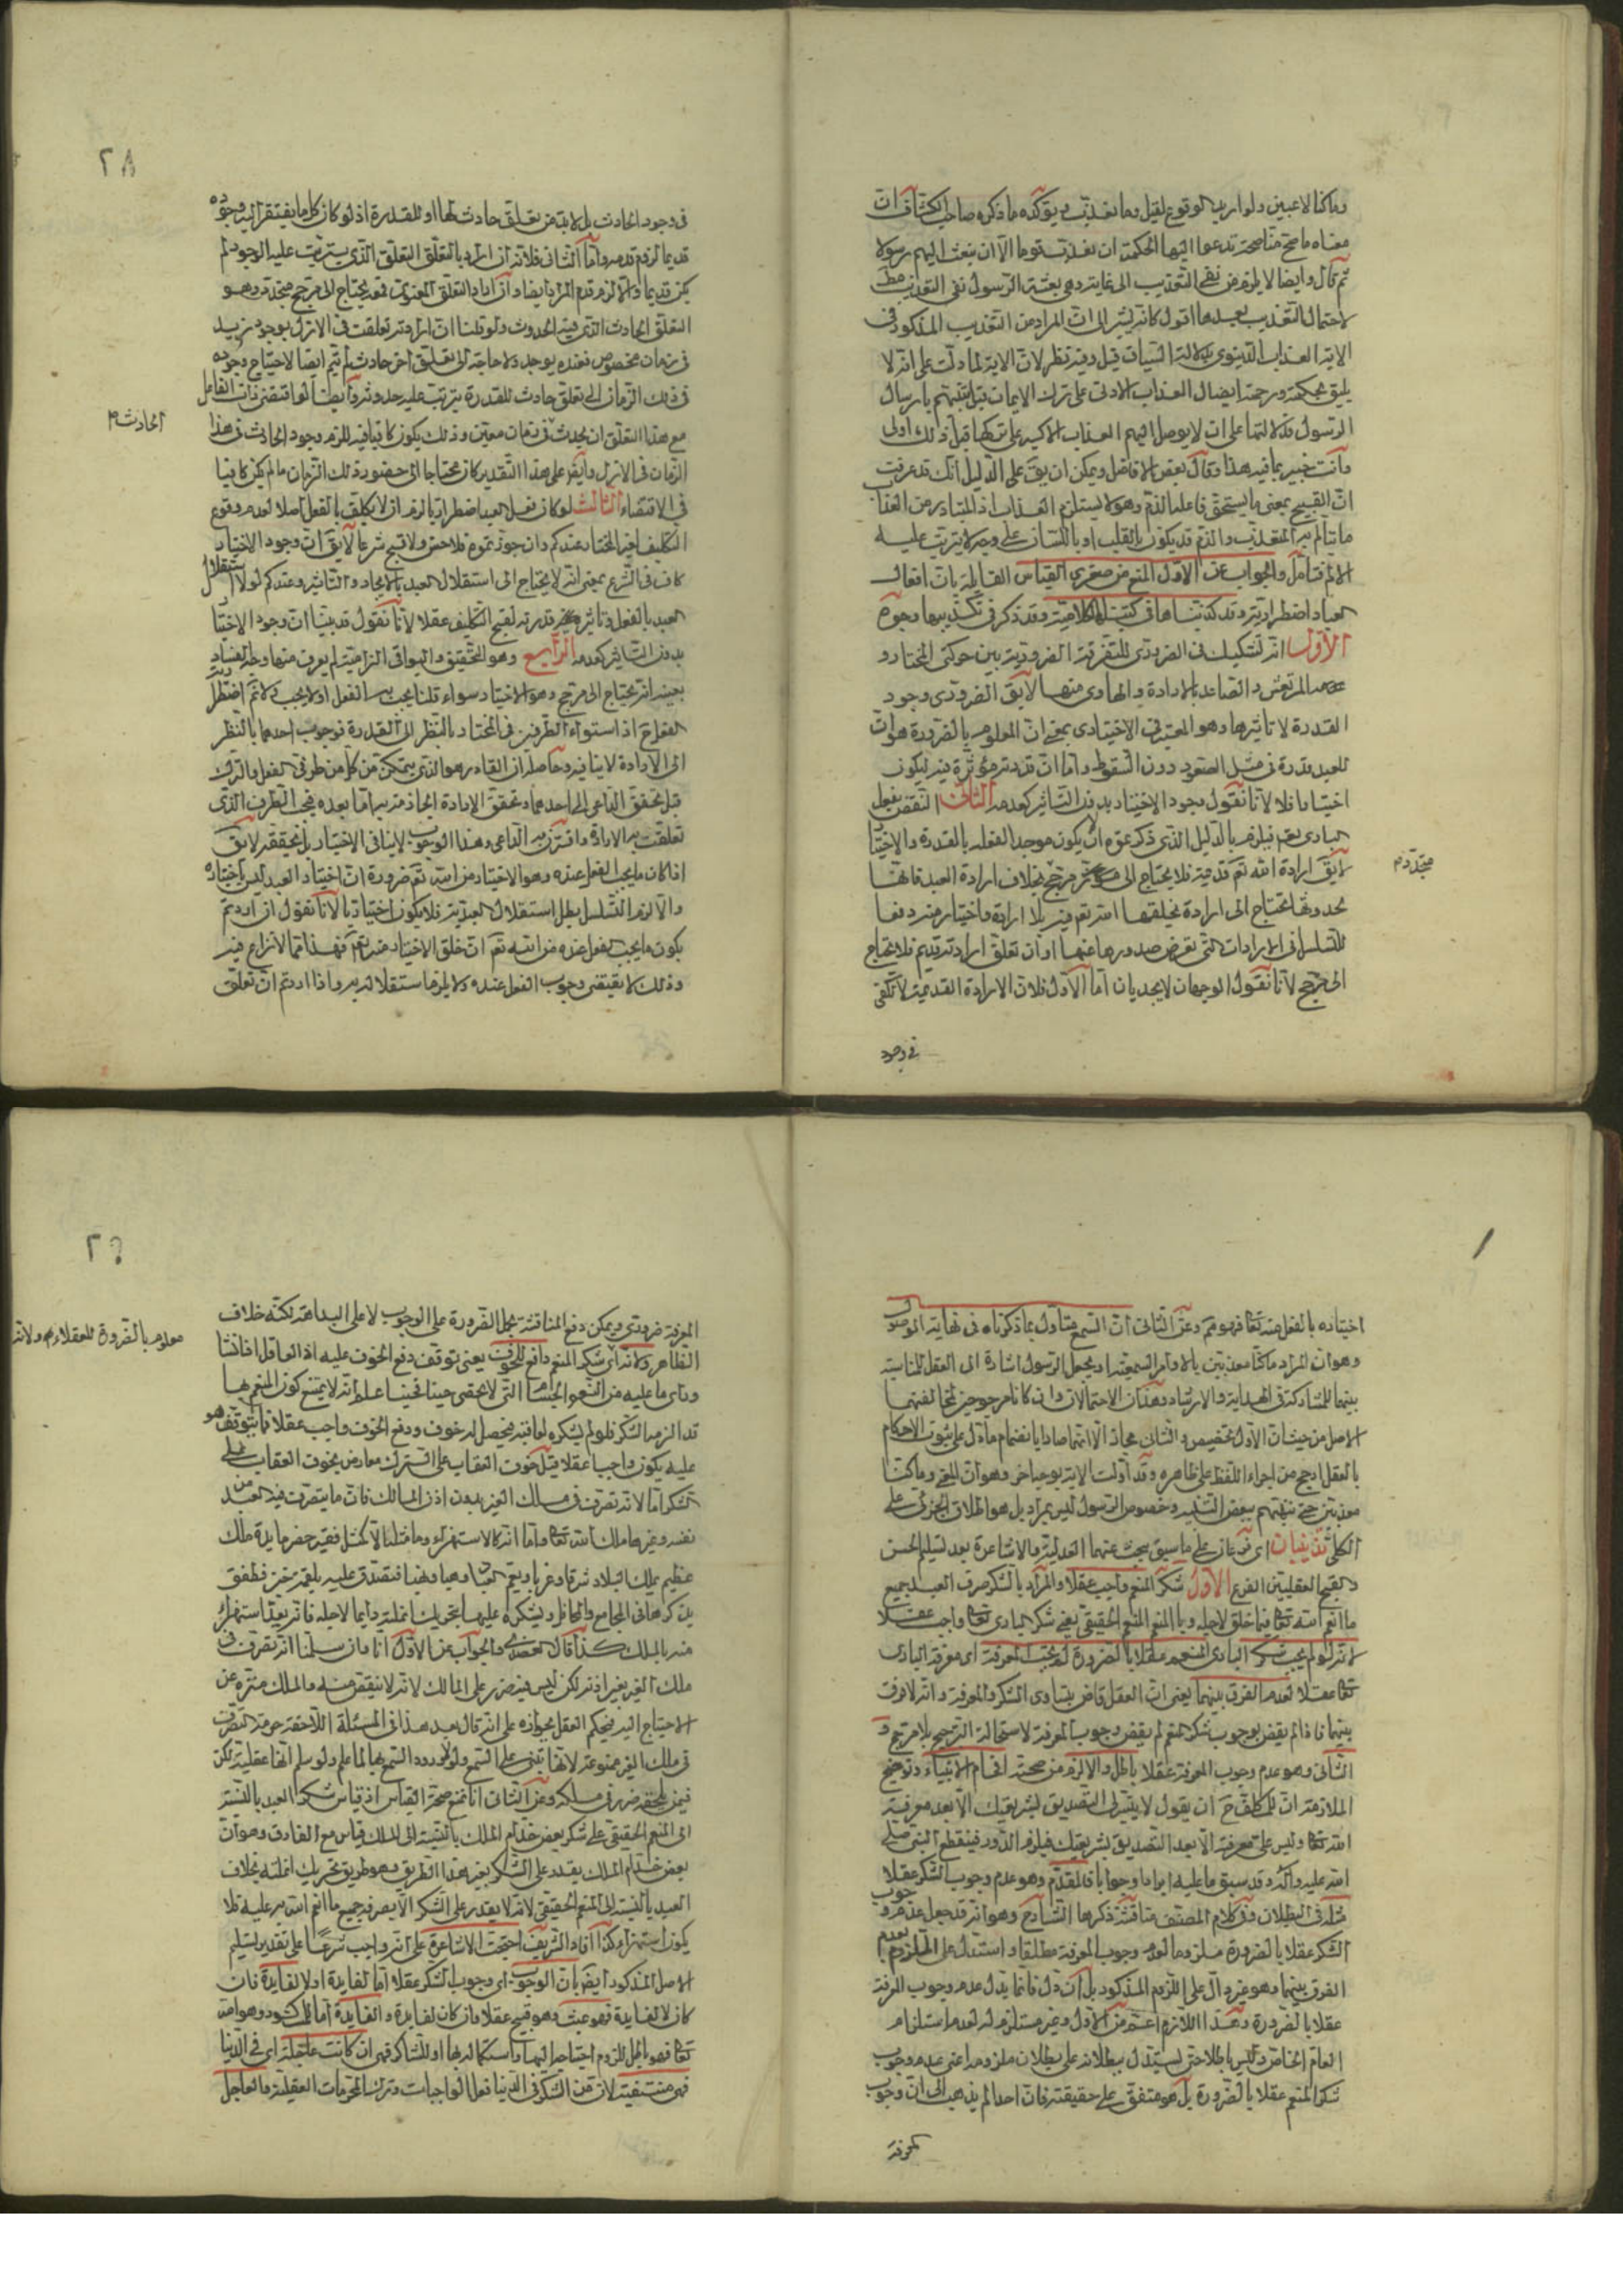 وماكنا لاعبين ولو اريد الوقوع لقيل وما نعذب ويؤكده ما ذكره صاحب الكشاف ان
معناه ما صح منا صحة تدعوا اليها الحكمة ان نعذب قوما الا ان نبعث اليهم رسولا
ثم قال وايضا لا يلزم من نفى التعذيب الى غاية وهى بعثة الرسول نفى التعذيب مط
لاحتمال التعذيب بعدها اقول كانه يشير الى ان المراد من التعذيب المذكور فى
الاية العذاب الدنيوى بدلالة السياق قيل وفيه نظر لان الاية لما دلت على انه لا
يليق بحكمته ورحمته ايصال العذاب الادنى على ترك الايمان قبل تنبيههم بارسال
الرسول فدلالتها على ان لا يوصل اليهم العذاب الاكبر على تركها قبل ذلك اولى
وانت خبير بما فيه هذا وقال بعض الافاضل ويمكن ان يق على الدليل انك قد عرفت
ان القبيح بمعنى ما يستحق فاعله الذم وهو لا يستلزم العذاب اذ المتبادر من العذاب
ما يتألم به المعذب والذم قد يكون بالقلب او باللسان على وجه لا يترتب عليه
الالم فتأمل والجواب عن الاول المنع من صغرى القياس القايلة بان افعال
العباد اضطرارية وقد كذبناها فى كتبنا الكلامية وقد ذكر فى تكذيبها وجوه
الاول انه تشكيك فى الضرورى للتفرقة الضرورية بين حركتى المختار و
المرتعش والصاعد بالارادة والهاوى منها لا يق الضرورى وجود
القدرة لا تاثيرها وهو المعتبر فى الاختيارى بمعنى ان المعلوم بالضرورة هو ان
للعبد قدرة فى مثل الصعود دون السقوط واما ان قدرته مؤثرة فيه ليكون
اختياريا فلا لانا نقول وجود الاختيار بدون التاثير كعدمه الثانى النقض بفعل
البارى تعم فيلزم بالدليل الذى ذكرتموه ان لا يكون موجدا لفعله بالقدرة والاختيار
لا يق ارادة الله تعم قديمة فلا يحتاج الى مرجح بخلاف ارادة العبد فانها
متجدد م
لحدوثها تحتاج الى ارادة يخلقها الله تعم فيه بلا ارادة واختيار منه دفعا
للتسلسل فى الارادات التى نفرض صدورها عنها او ان تعلق ارادته قديم فلا يحتاج
الى مرجح لانا نقول الوجهان لا يجديان اما الاول فلان الارادة القديمة لا تكفى
فى وجود
٢٨
فى وجود الحادث بل لا بد من تعلق حادث لها او للقدرة اذ لو كان كل ما يفتقر اليه وجوده
قديما لزم قدمه واما الثانى فلانه ان اراد بالتعلق التعلق الذى يترتب عليه الوجود لم
يكن قديما والا لزم قدم المراد ايضا وان اراد التعلق المعنوى فقد يحتاج الى مرجح متجدد وهو
التعلق الحادث الذى فيه الحدوث ولو قلنا ان ارادته تعلقت فى الازل بوجود زيد
فى زمان مخصوص فعنده يوجد ولا حاجة الى تعلق اخر حادث لم يتم ايضا لاحتياج وجوده
فى ذلك الزمان الى تعلق حادث للقدرة يترتب عليه حدوثه وايضا لو اقتضى ذات الفاعل
الحادث م
مع هذا التعلق ان يحدث فى زمان معين وذلك يكون كافيا فيه للزم وجود الحادث فى هذا
الزمان فى الازل وايض على هذا التقدير كان محتاجا الى حضور ذلك الزمان ما لم يكن كافيا
فى الاقتضاء الثالث لو كان فعل العبد اضطراريا لزم ان لا يكلف بالفعل اصلا لعدم وقوع
التكليف بغير المختار عندكم وان جوزتموه فلا حسن ولا قبح شرعا لا يق ان وجود الاختيار
كاف فى الشرع بمعنى انه لا يحتاج الى استقلال العبد بالايجاد والتاثير وعندكم لولا استقلال
العبد بالفعل وتاثير قدرته لقبح التكليف عقلا لانا نقول قد بينا ان وجود الاختيار
بدون التاثير كعدمه الرابع وهو التحقيق والبواقى الزامية لم يعرف منها وجه الفساد
بعينه انه يحتاج الى مرجح وهو الاختيار سواء قلنا يجب به الفعل او لا يجب ولا ثم اضطرارية
الفعل ح اذ استواء الطرفين فى المختار بالنظر الى القدرة فوجوب احدهما بالنظر
الى الارادة لا ينافيه وحاصله ان القادر هو الذى يتمكن من كل من طرفى الفعل والترك
قبل تحقق الداعى الى احدهما وتحقق الارادة الجازمة به اما بعده فيجب الطرف الذى
تعلقت به الارادة واقترن به الداعى وهذا الوجوب لا ينافى الاختيار بل يحققه لا يق
اذا كان ما يجب الفعل عنده وهو الاختيار من الله تعم ضرورة ان اختيار العبد ليس باختياره
والا لزم التسلسل بطل استقلال العبد به فلا يكون اختياريا لانا نقول ان اردتم
بكون ما يجب الفعل عنده من الله تعم ان خلق الاختيار منه تعم فهذا مما لا نزاع فيه
وذلك لا يقتضى وجوب الفعل عنده ولا يلزم استقلاله به واذا اردتم ان تعلق
اختياره بالفعل منه تعا فهو مم وعن الثانى ان السمع متأول بما ذكرناه فى نهاية الوصول
وهو ان المراد ماكنا معذبين بالاوامر السمعية او بجعل الرسول اشارة الى العقل للمناسبة
بينهما للمشاركة فى الهداية والارشاد وهذان الاحتمالان وان كانا مرجوحين لمخالفتهما
الاصل من حيث ان الاول تخصيص والثانى مجاز الا انهما صارا بانضمام ما دل على ثبوت الاحكام
بالعقل ارجح من اجراء اللفظ على ظاهره وقد اولت الاية بوجه اخر وهو ان المعنى وماكنا
معذبين حتى ننبههم ببعض التنبيه وخصوص الرسول ليس بمراد بل هو اطلاق الجزئى على
الكلى تذنيبان اى فرعان على ما سبق يبحث عنهما العدلية والاشاعرة بعد تسليم الحسن
والقبح العقليين الفرع الاول شكر المنعم واجب عقلا والمراد بالشكر صرف العبد جميع
ما انعم الله تعا فيما خلق لاجله وبالمنعم المنعم الحقيقى يعنى شكر البارى تعا واجب عقلا
لانه لو لم يجب شكر البارى المنعم عقلا بالضرورة لم يجب المعرفة اى معرفة البارى
تعا عقلا لعدم الفرق بينهما يعنى ان العقل قاض بتساوى الشكر والمعرفة وانه لا فرق
بينهما فاذا لم يقض بوجوب شكر المنعم لم يقض بوجوب المعرفة لاستحالة الترجيح بلا مرجح و
الثانى وهو عدم وجوب المعرفة عقلا باطل والا لزم من صحته افحام الانبياء وتوضيح
الملازمة ان للمكلف ح ان يقول لا يتيسر لى التصديق بشريعتك الا بعد معرفة
الله تعا وليس على معرفته الا بعد التصديق بشريعتك فيلزم الدور فينقطع النبى صلى
الله عليه واله وقد سبق ما عليه ايرادا وجوابا فالمقدم وهو عدم وجوب الشكر عقلا
مثله فى البطلان وفى كلام المصنف مناقشة ذكرها الشارح وهو انه قد جعل عدم وجوب
الشكر عقلا بالضرورة ملزوما لعدم وجوب المعرفة مطلقا واستدل على الملزوم بعدم
الفرق بينهما وهو غير دال على اللزوم المذكور بل ان دل فانما يدل عدم وجوب المعرفة
عقلا بالضرورة وهذا اللازم اعم من الاول وغير مستلزم له لعدم استلزام
العام الخاص وليس باطلا حتى يستدل ببطلانه على بطلان ملزومه اعنى عدم وجوب
شكر المنعم عقلا بالضرورة بل هو متفق على حقيقته فان احدا لم يذهب الى ان وجوب
المعرفة
٢٩
المعرفة ضرورى ويمكن دفع المناقشة بحمل الضرورة على الوجوب لا على البداهة لكنه خلاف
معلوم بالضرورة للعقلاء م ولانه
الظاهر ولانه اى شكر المنعم دافع للخوف يعنى توقف دفع الخوف عليه اذ العاقل اذا نشا
وراى ما عليه من النعم الجسام التى لا تحصى حينا فحينا علم انه لا يمتنع كون المنعم بها
قد الزمه الشكر فلو لم يشكره لعاقبه فيحصل له خوف ودفع الخوف واجب عقلا فما يتوقف هو
عليه يكون واجبا عقلا قيل خوف العقاب على الترك معارض بخوف العقاب على
الشكر اما لانه تصرف فى ملك الغير بدون اذن المالك فان ما يتصرف فيه العبد من
نفسه وغيرها ملك الله تعا واما انه كالاستهزاء وما مثلنا الا كمثل فقير حضر مايدة ملك
عظيم يملك البلاد شرقا وغربا ويعم العباد وهبا ونهبا فتصدق عليه بلقمة خبز فطفق
يذكرها فى المجامع والمحافل ويشكره عليها بتحريك انملته دايما لاجله فانه يعد استهزاء
منه بالملك كذا قال العضدى والجواب عن الاول انا وان سلمنا انه تصرف فى
ملك الغير بغير اذنه لكن ليس فيه ضرر على المالك لانه لا ينقص منه والملك منزه عن
الاحتياج اليه فيحكم العقل بجوازه على انه قال بعد هذا فى المسئلة اللاحقة حرمة التصرف
فى ملك الغير ممنوعة لانها تبنى على السمع ولولا ورود السمع بها لما علم ولو سلم انها عقلية لكن
فيمن يلحقه ضرر فى ملكه وعن الثانى انا نمنع صحة القياس اذ قياس شكر العبد بالنسبة
الى المنعم الحقيقى على شكر بعض خدام الملك بالنسبة الى الملك قياس مع الفارق وهو ان
بعض خدام الملك يقدر على الشكر بغير هذا الطريق وهو طريق تحريك انملته بخلاف
العبد بالنسبة الى المنعم الحقيقى لانه لا يقدر على الشكر الا بصرف جميع ما انعم الله به عليه فلا
يكون استهزاء كذا افاد الشريف احتجت الاشاعرة على انه واجب شرعا على تقدير تسليم
الاصل المذكور ايض بان الوجوب اى وجوب الشكر عقلا اما لفايدة او لا لفايدة فان
كان لا لفايدة فهو عبث وهو قبيح عقلا وان كان لفايدة والفايدة اما للمشكور وهو الله
تعا فهو باطل للزوم احتياجه اليها واستكماله بها او للشاكر فهى ان كانت عاجلة اى فى الدنيا
فهى منتفية لان من الشكر فى الدنيا فعل الواجبات وترك المحرمات العقلية والعاجل